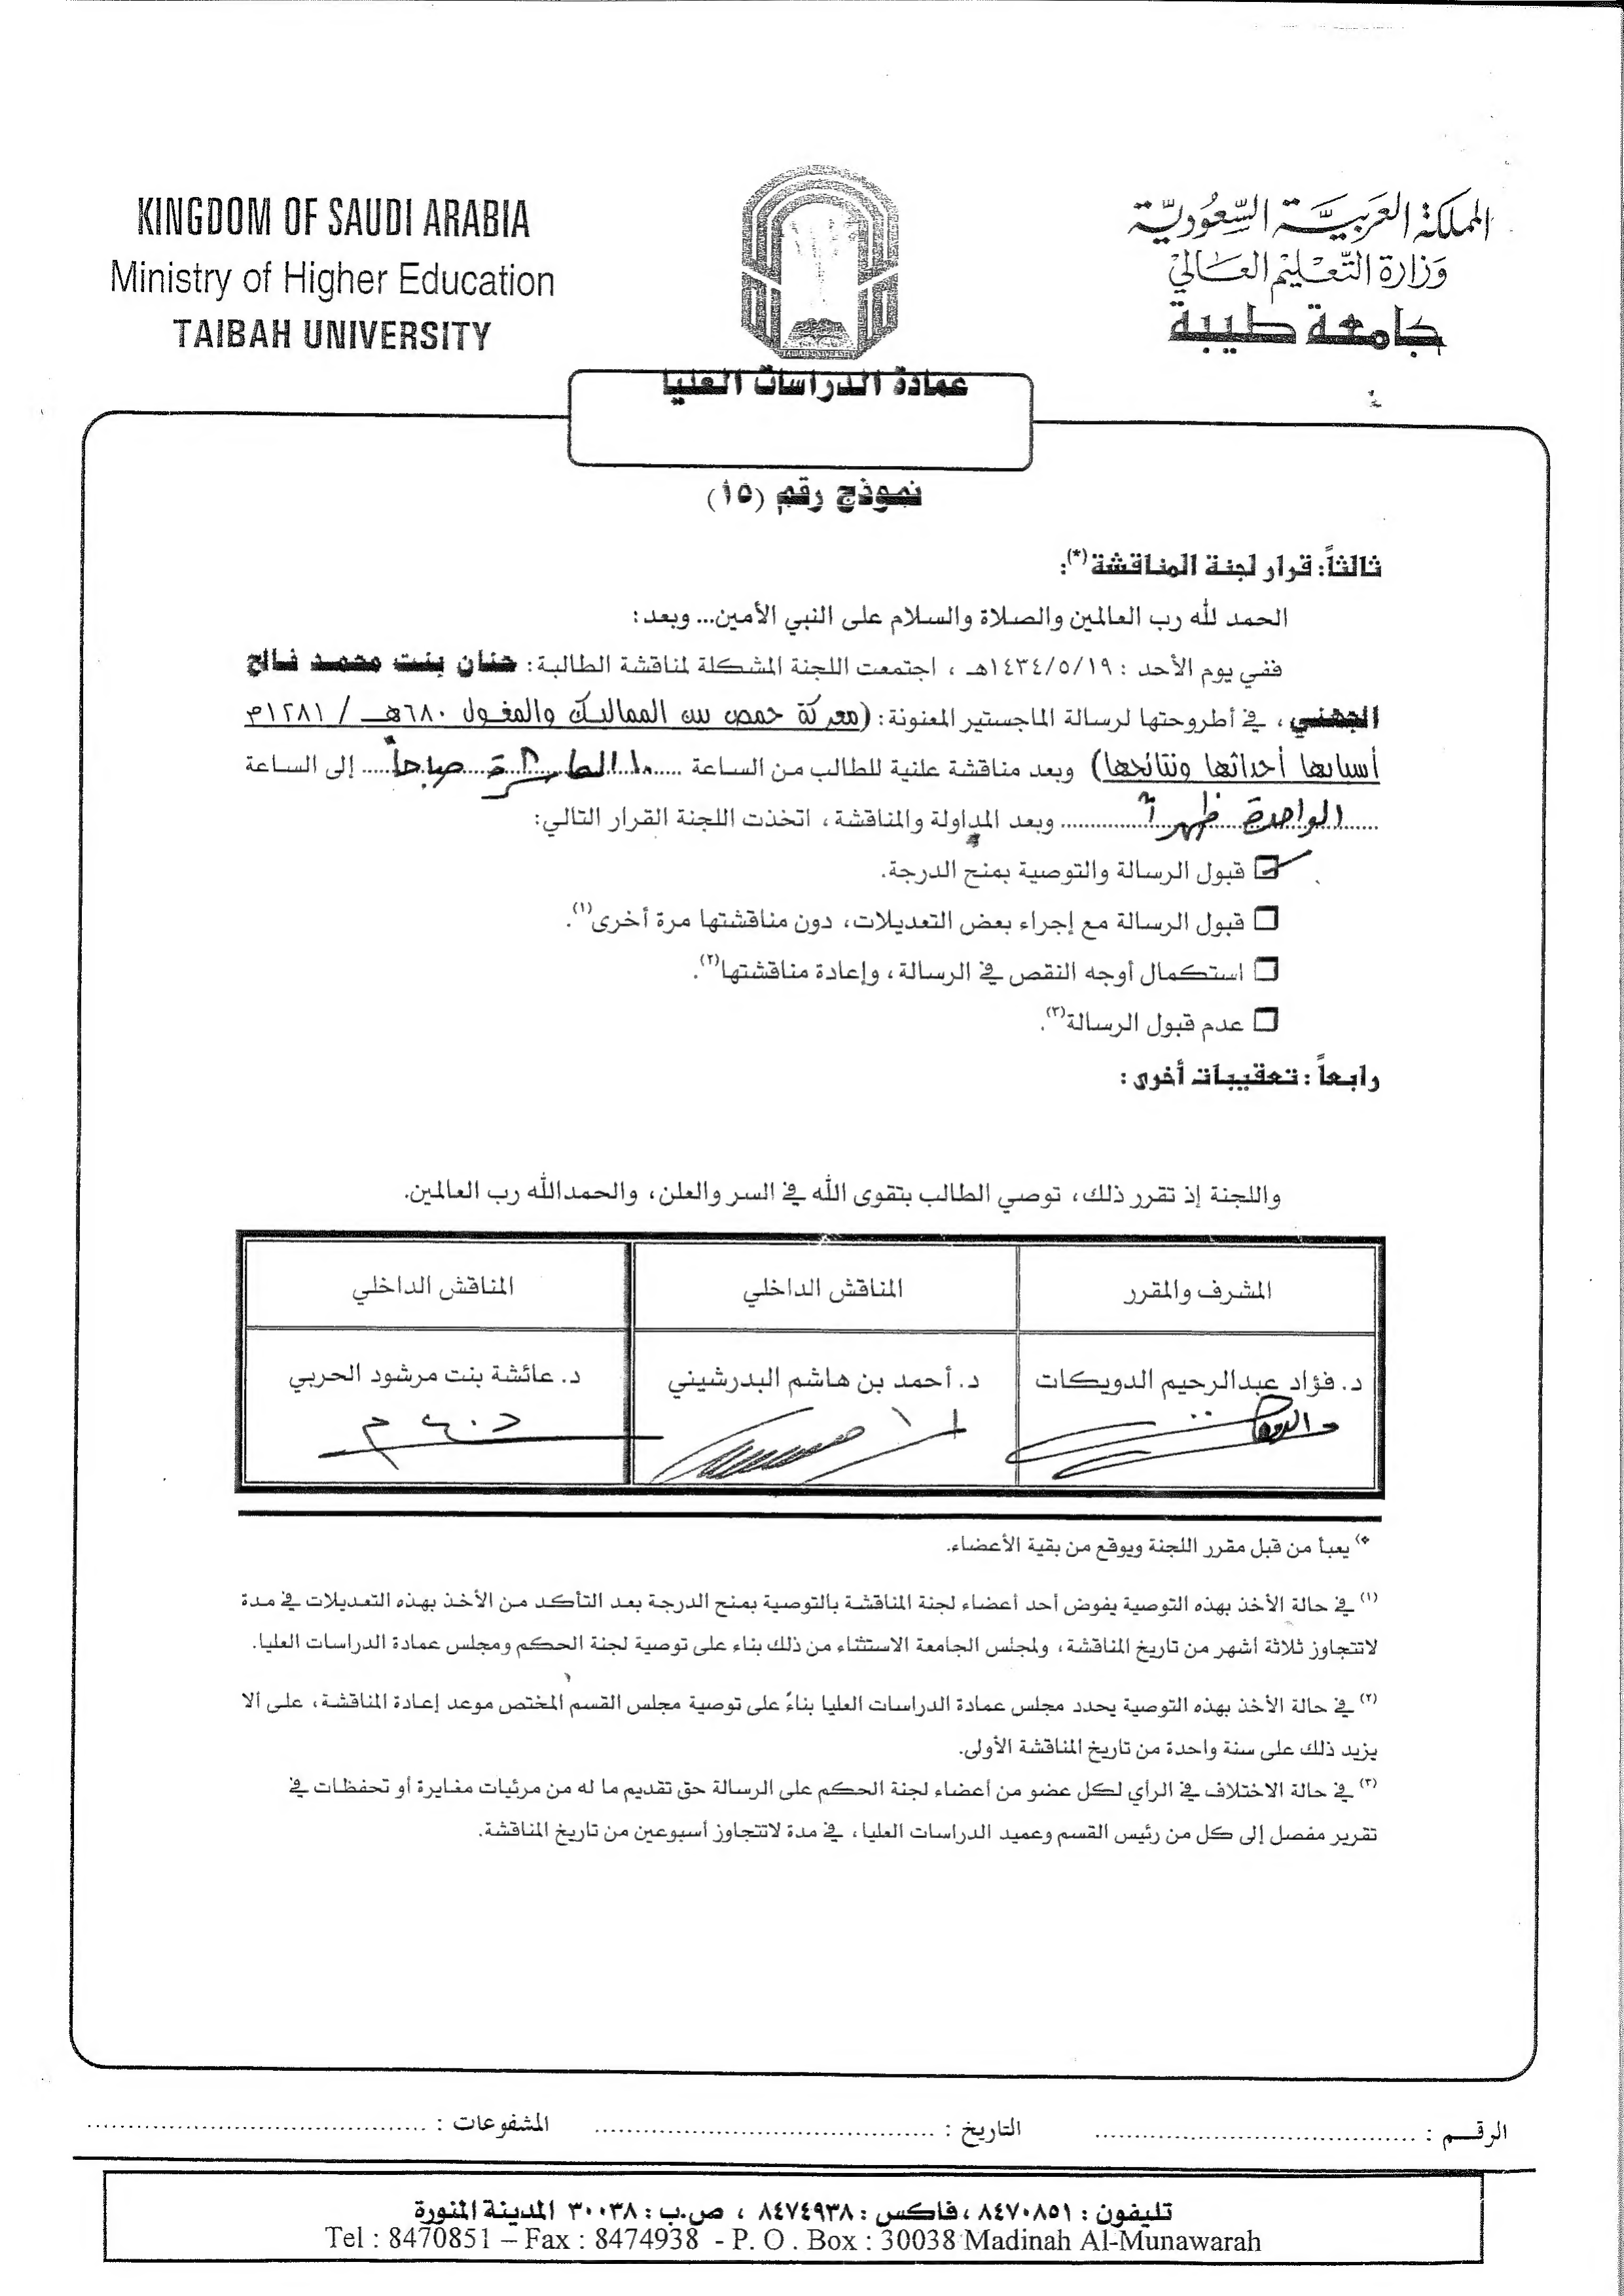 KINGDOM OF SAUDI ARABIA
Ministry of Higher Education
TAIBAH UNIVERSITY
المملكة العربية السعودية
وزارة التعليم العالي
جامعة طيبة
عمادة الدراسات العليا
نموذج رقم (١٥)
ثالثاً: قرار لجنة المناقشة(*):
الحمد لله رب العالمين والصلاة والسلام على النبي الأمين... وبعد:
ففي يوم الأحد : ١٤٣٤/٥/١٩هـ ، اجتمعت اللجنة المشكلة لمناقشة الطالبة: حنان بنت محمد فالح
الجهني ، في أطروحتها لرسالة الماجستير المعنونة: (معركة حمص بين المماليك والمغول ٦٨٠هـ / ١٢٨١م
أسبابها أحداثها ونتائجها) وبعد مناقشة علنية للطالب من الساعة ..... ١٠ العاشرة صباحاً ..... إلى الساعة
..... الواحدة ظهراً ..... وبعد المداولة والمناقشة، اتخذت اللجنة القرار التالي:
☑ قبول الرسالة والتوصية بمنح الدرجة.
☐ قبول الرسالة مع إجراء بعض التعديلات، دون مناقشتها مرة أخرى(١).
☐ استكمال أوجه النقص في الرسالة، وإعادة مناقشتها(٢).
☐ عدم قبول الرسالة(٣).
رابعاً : تعقيبات أخرى :
واللجنة إذ تقرر ذلك، توصي الطالب بتقوى الله في السر والعلن، والحمدالله رب العالمين.
المشرف والمقرر
المناقش الداخلي
المناقش الداخلي
د. فؤاد عبدالرحيم الدويكات
د. أحمد بن هاشم البدرشيني
د. عائشة بنت مرشود الحربي
*) يعبأ من قبل مقرر اللجنة ويوقع من بقية الأعضاء.
(١) في حالة الأخذ بهذه التوصية يفوض أحد أعضاء لجنة المناقشة بالتوصية بمنح الدرجة بعد التأكد من الأخذ بهذه التعديلات في مدة
لاتتجاوز ثلاثة أشهر من تاريخ المناقشة، ولمجلس الجامعة الاستثناء من ذلك بناء على توصية لجنة الحكم ومجلس عمادة الدراسات العليا.
(٢) في حالة الأخذ بهذه التوصية يحدد مجلس عمادة الدراسات العليا بناءً على توصية مجلس القسم المختص موعد إعادة المناقشة، على ألا
يزيد ذلك على سنة واحدة من تاريخ المناقشة الأولى.
(٣) في حالة الاختلاف في الرأي لكل عضو من أعضاء لجنة الحكم على الرسالة حق تقديم ما له من مرئيات مغايرة أو تحفظات في
تقرير مفصل إلى كل من رئيس القسم وعميد الدراسات العليا، في مدة لاتتجاوز أسبوعين من تاريخ المناقشة.
الرقـــم : ........................................ التاريخ : .......................................... المشفوعات : ..........................................
تليفون : ٨٤٧٠٨٥١ ، فاكس : ٨٤٧٤٩٣٨ ، ص.ب : ٣٠٠٣٨ المدينة المنورة
Tel : 8470851 – Fax : 8474938 - P. O . Box : 30038 Madinah Al-Munawarah